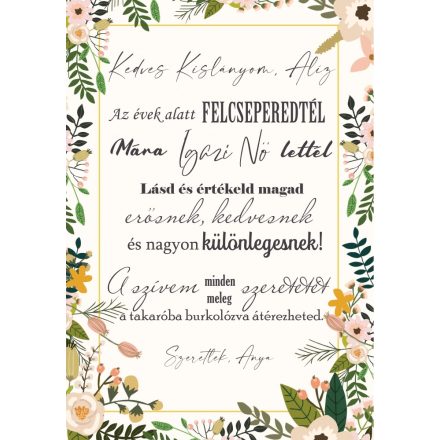 Kedves Kislányom, Aliz
Az évek alatt FELCSEPEREDTÉL
Mára Igazi Nő lettél
Lásd és értékeld magad
erősnek, kedvesnek
és nagyon különlegesnek!
A szívem minden meleg szeretetét
a takaróba burkolózva átérezheted.
Szeretlek, Anya